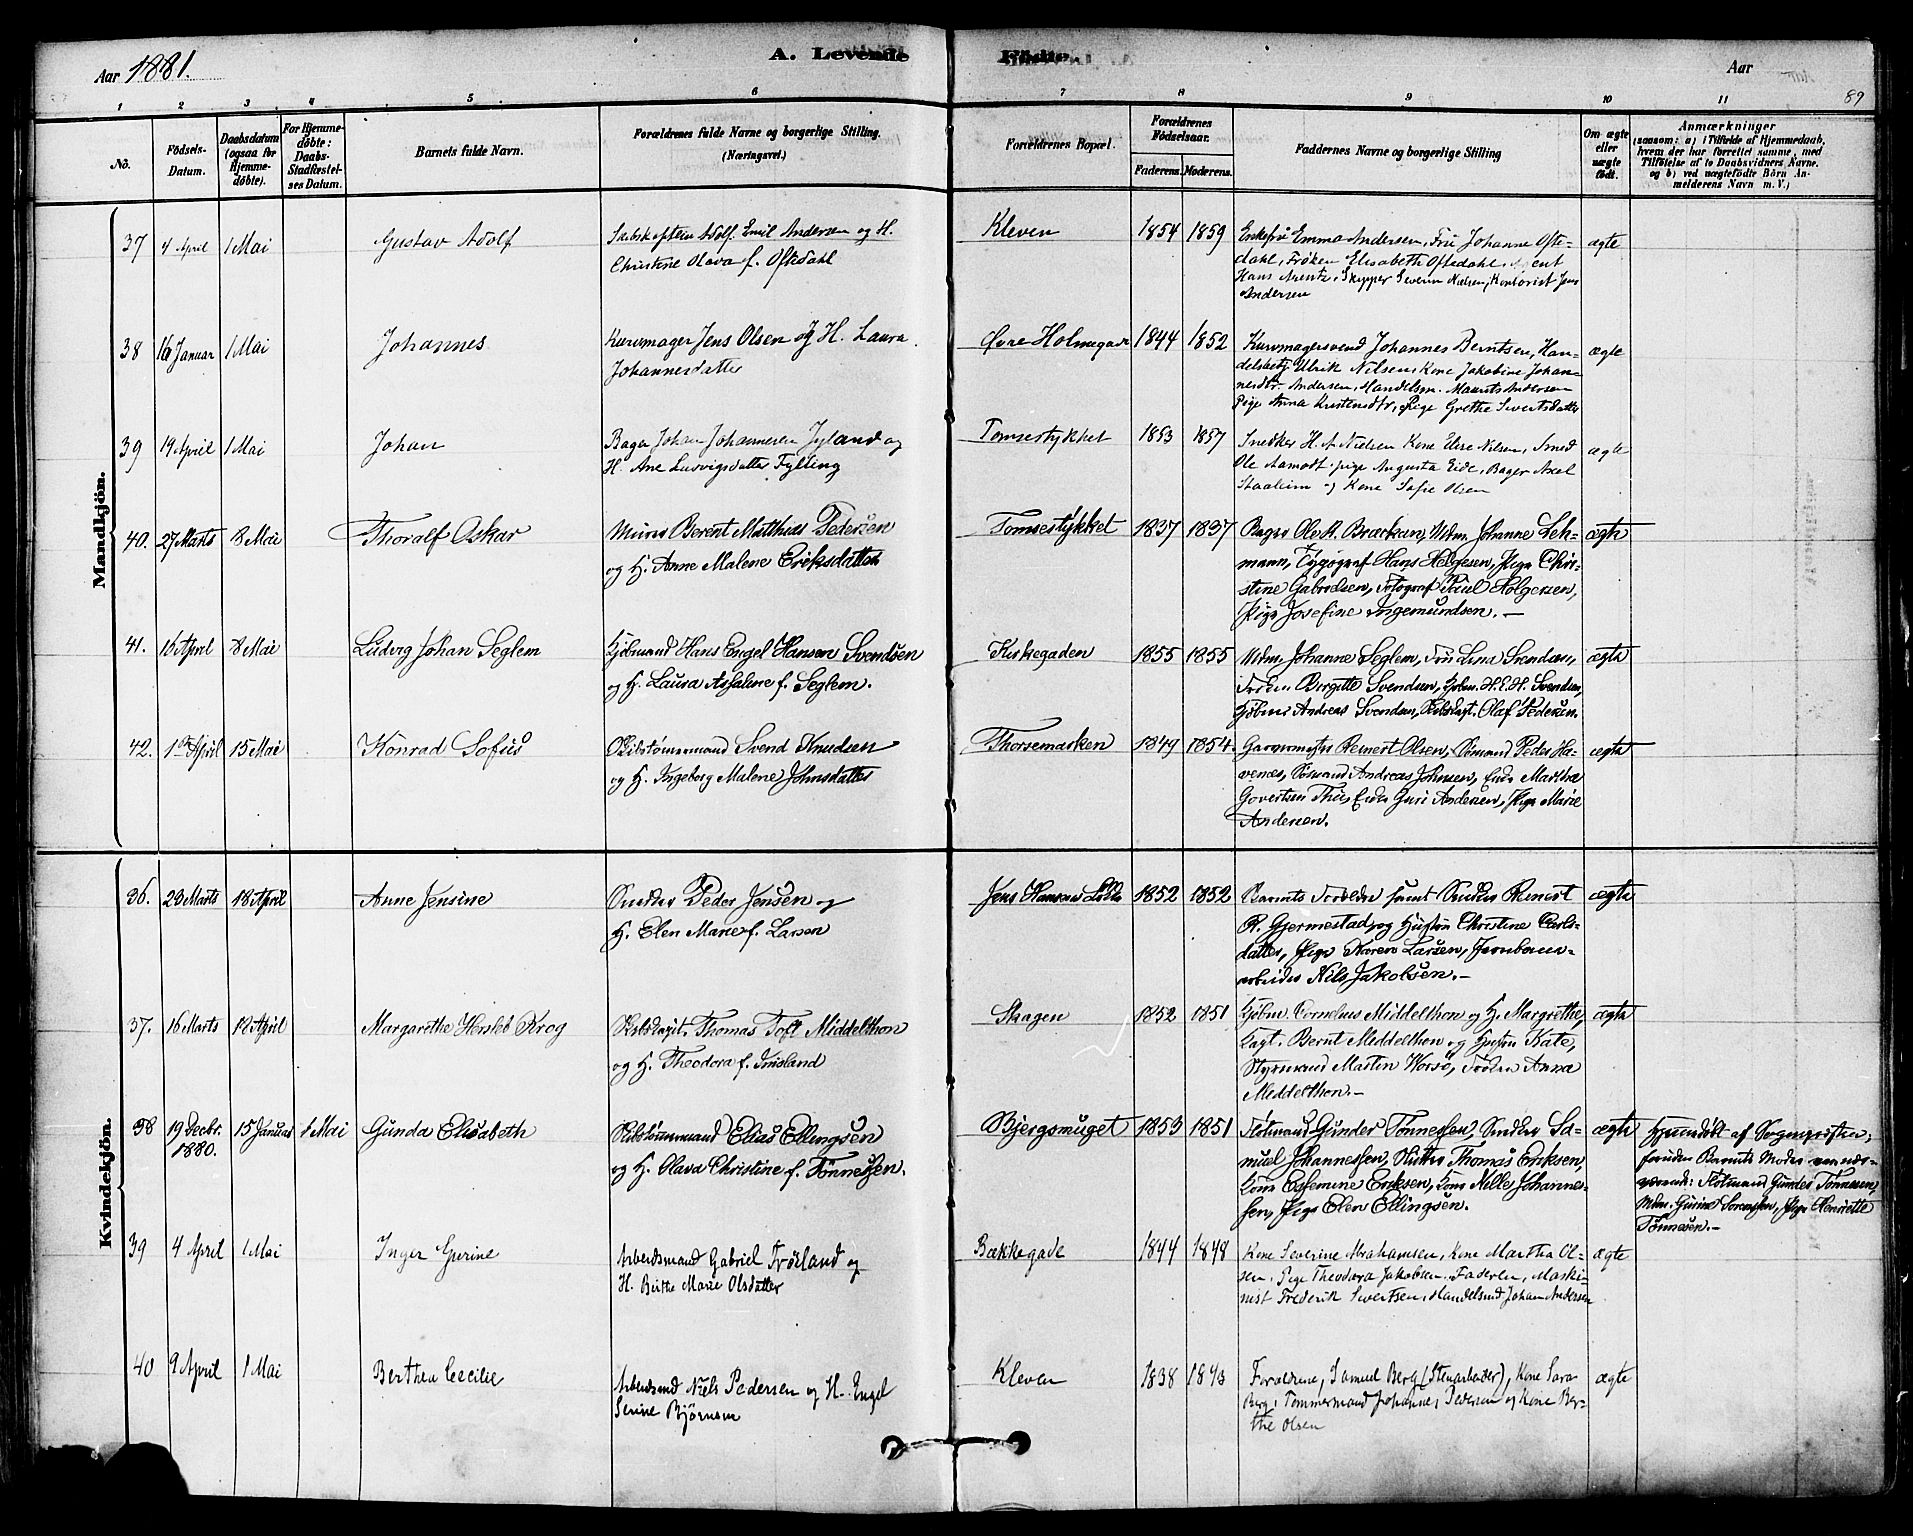 Aar 1881.
A. Levende
Födte
Aar
1 2 3 4 5 6 7 8 9 10 11
89
No.
Födsels-Datum.
Daabsdatum (ogsaa for Hjemme-döbte).
For Hjemme-döbte: Daabs-Stadfæstel-ses Datum.
Barnets fulde Navn.
Forældrenes fulde Navne og borgerlige Stilling.
(Næringsvei.)
Forældrenes Bopæl.
Forældrenes Födselsaar.
Faderens. Moderens.
Faddernes Navne og borgerlige Stilling
Om ægte eller uægte födt.
Anmærkninger
(saasom: a) i Tilfælde af Hjemmedaab,
hvem der har forrettet samme, med
Tilföielse af to Daabsvidners Navne.
og b) ved uægtefödte Börn An-
melderens Navn m. V.)
Mandkjön.
37 4 April 1 Mai Gustav Adolf
Skibskaptein Adolf Emil Andersen og H.
Christine Olava f. Oftedahl
Kleven 1854 1859
Enkefru Emma Andersen, Fru Johanne Ofte-
dahl, Frøken Elisabeth Oftedahl, Agent
Hans Arentz, Skipper Severin Nielsen, Kontorist Jens
Andersen
ægte
38 16 Januar 1 Mai Johannes
Kurvmager Jens Olsen og H. Laura
Johannesdatter
Øvre Holmegade 1844 1852
Kurvmagersvend Johannes Berntsen, Han-
delsbetj Ulrik Nilsen, Kone Jakobine Johan-
nesdtr. Andersen, Handelsm. Maurits Andersen
Pige Anna Kristensdtr, Pige Grethe Sivertsdatter
ægte
39 19 April 1 Mai Johan
Bager Johan Johannesen Jyland og
H. Ane Ludvigsdatter Fylling
Tomsestykket 1853 1857
Snedker H. A. Nielsen Kone Else Nilsen, Smed
Ole Aamodt, pige Augusta Eide, Bager Axel
Staalein og Kone Sofie Olsen
ægte
40. 27 Marts 8 Mai Thoralf Oskar
Murer Berent Matthias Pedersen
og H. Anne Malene Eriksdatter
Tomsestykket 1837 1837
Bager Ole M. Brækan, Mdm. Johanne Leh-
mann, Typograf Hans Helgesen, Pige Chri-
stine Gabrielsen, Fotograf Paul Holgersen,
Pige Josefine Torgemundsen. —
ægte
41. 16 April 8 Mai Ludvig Johan Seglem
Kjøbmand Hans Engel Hansen Svendsen
og H. Laura Assalene f. Seglem.
Kirkegaden 1855 1855
Mdm. Johanne Seglem, Fru Lina Svendsen,
Frøken Birgitte Svendsen, Kjøbm. H. E. H. Svendsen,
Kjøbm. Andreas Svendsen, Skibskapt. Olaf Pedersen.
ægte
42. 1ste April 15 Mai Konrad Sofus
Skibstømmermand Svend Knudsen
og H. Ingeborg Malene Johnsdatter
Thorsemarken 1849 1854.
Garvermester Reinert Olsen, Sømand Peder Ha-
venæs, Sømand Andreas Johnsen, Enke Martha
Govertsen Thiis Enke Guri Andersen, Pige Marie
Andersen.
ægte
Kvindekjön.
36. 23 Marts 18 April Anne Jensine
Snedker Peder Jensen og
H. Elen Marie f. Larsen
Jens Hansens Løkke 1852 1852
Barnets Forældre samt Snedker Reinert
R. Gjermestad og Hustru Christine Carls-
datter, Pige Karen Larsen, Jernbane-
arbeider Nils Jakobsen. —
ægte
37. 16 Marts 18 April Margarethe Hersleb Krog
Skibskapt. Thomas Toft Middelthon
og H. Theodora f. Friisland
Skagen 1852 1851
Kjøbm. Cornelius Middelthon og H. Margrethe,
Capt. Bernt Meddelthon og Hustru Kate,
Styrmand Martin Worsø, Frøken Anna
Meddelthon. —
ægte
38 19 Decbr. 1880. 15 Januar 1 Mai Gunda Elisabeth
Skibstømmermand Elias Ellingsen
og H. Olava Christine f. Tønnessen.
Bjergsmuget 1853 1851
Flotmand Gunder Tønnessen, Snedker Sa-
muel Johannessen, Slutter Thomas Eriksen,
Kone Asseminе Eriksen, Kone Nelle Johannes-
sen, Pige Elen Ellingsen.
ægte
Hjemmedøbt af Sognepresten;
foruden Barnets Moder var nær-
værende: Flotmand Gunder Tønnesen,
Mdm. Gurine Sørensen, Pige Henriette
Tønnesen. —
39 4 April 1 Mai Inger Gurine
Arbeidsmand Gabriel Frøiland og
H. Birthe Marie Olsdatter
Bakkegade 1844 1848
Kone Severine Abrahamsen, Kone Martha Ol-
sen, Pige Theodora Jakobsen, Faderen, Maski-
nist Frederik Sivertsen, Handelsmd Johan Andersen
ægte
40 9 April 1 Mai Berthea Cecilie
Arbeidsmd Niels Pedersen og H. Engel
Serine Bjørnsen
Kleven 1838 1843
Forældrene, Samuel Berg (Stenarbeider), Kone Sara
Berg, Tømmermand Johannes Pedersen og Kone Ber-
the Olsen
ægte